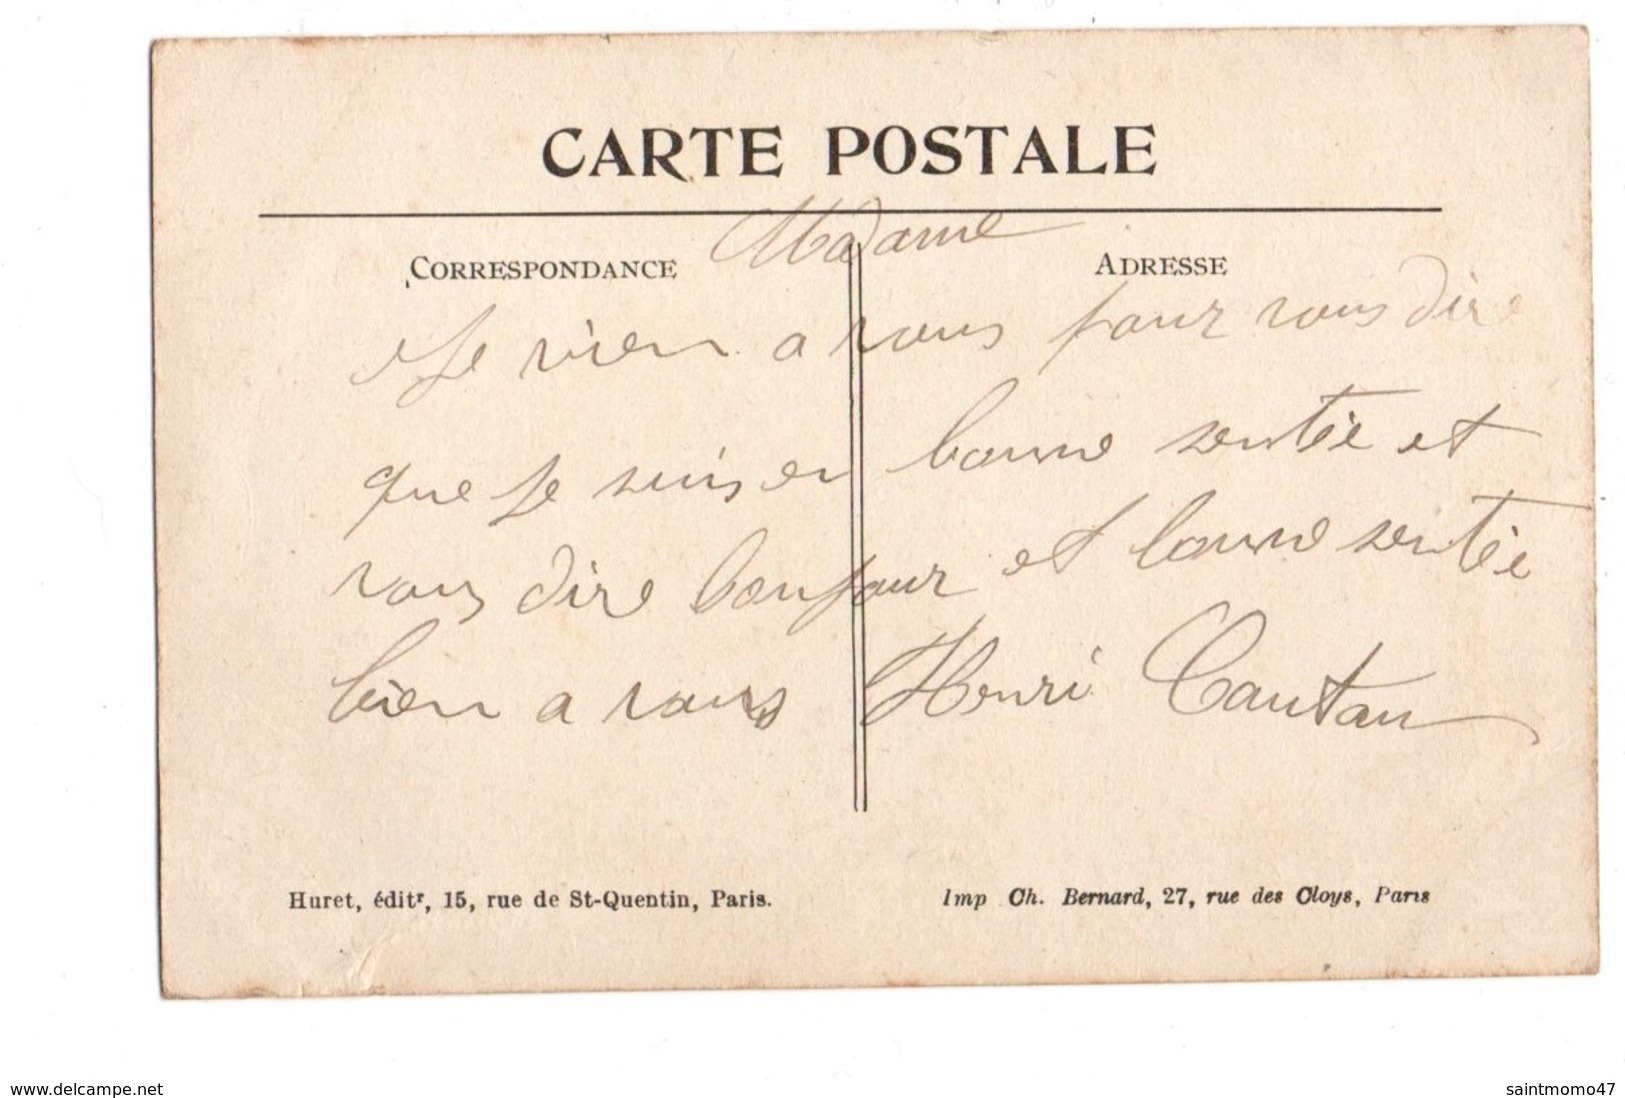 CARTE POSTALE
Madame
CORRESPONDANCE ADRESSE
Je vien a vous pour vous dire
que je suis en bonne sentée et
vous dire bonjour et bonne sentée
bien a vous Henri Cautan
Huret, éditr, 15, rue de St-Quentin, Paris.
Imp Ch. Bernard, 27, rue des Cloys, Paris
www.delcampe.net
saintmomo47